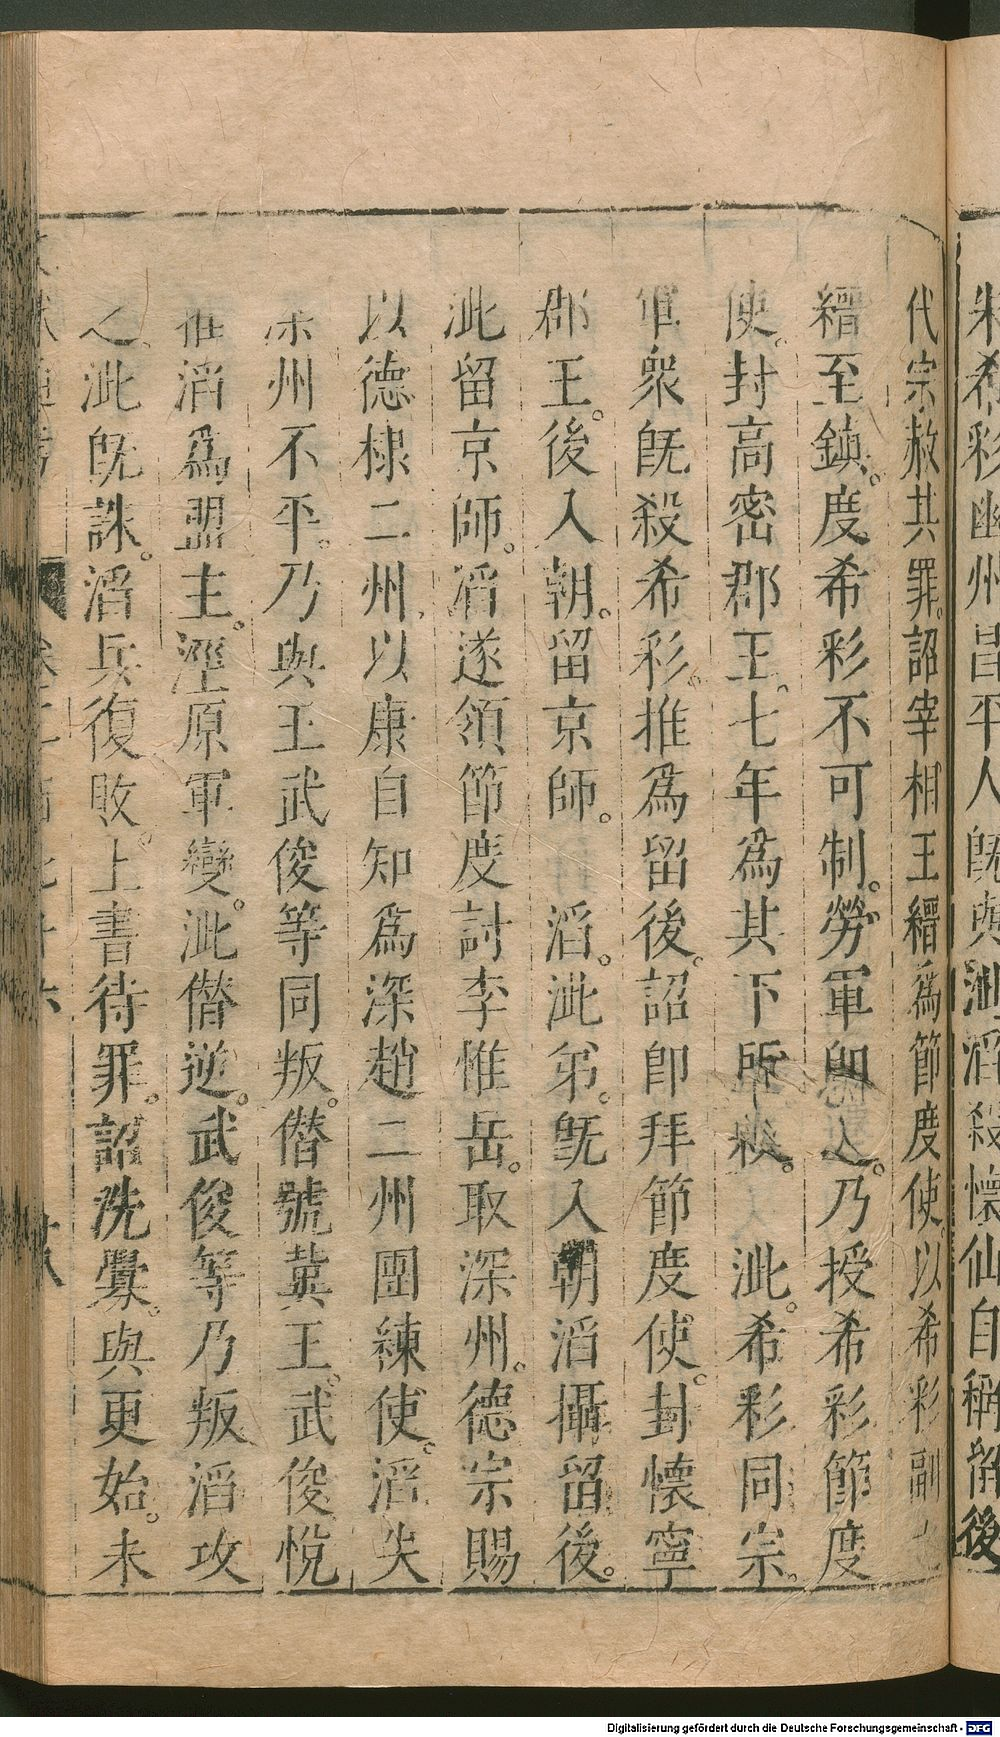 朱希彩幽州昌平人既與泚滔殺懷仙自稱留後
代宗赦其罪。詔宰相王縉為節度使。以希彩副之
縉至鎮。度希彩不可制。勞軍即還。乃授希彩節度
使。封高密郡王。七年為其下所殺。泚。希彩同宗。
軍衆既殺希彩。推為留後。詔即拜節度使。封懷寧
郡王。後入朝。留京師。滔。泚弟。既入朝滔攝留後。
泚留京師。滔遂領節度討李惟岳。取深州。德宗賜
以德棣二州。以康自知為深趙二州團練使。滔失
深州不平。乃與王武俊等同叛。僭號冀王。武俊悅
推滔為盟主。涇原軍變。泚僭逆。武俊等乃叛滔攻
之。泚既誅。滔兵復敗。上書待罪。詔洗釁。與更始。未
Digitalisierung gefördert durch die Deutsche Forschungsgemeinschaft - DFG